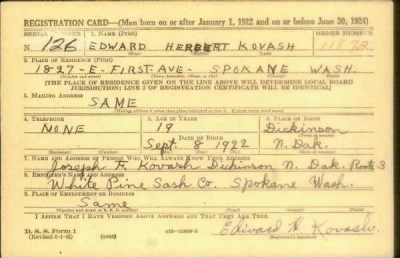 REGISTRATION CARD—(Men born on or after January 1, 1922 and on or before June 30, 1924)
SERIAL NUMBER 1. NAME (Print) ORDER NUMBER
N 126 EDWARD HERBERT KOVASH
2. PLACE OF RESIDENCE (Print)
1827-E-FIRST-AVE- SPOKANE WASH.
[THE PLACE OF RESIDENCE GIVEN ON THE LINE ABOVE WILL DETERMINE LOCAL BOARD
JURISDICTION; LINE 2 OF REGISTRATION CERTIFICATE WILL BE IDENTICAL]
3. MAILING ADDRESS
SAME
4. TELEPHONE 5. AGE IN YEARS 6. PLACE OF BIRTH
NONE 19 Dickinson
DATE OF BIRTH
Sept. 8 1922 N. Dak.
7. NAME AND ADDRESS OF PERSON WHO WILL ALWAYS KNOW YOUR ADDRESS
Joseph F. Kovash Dickinson N. Dak. Route 3
8. EMPLOYER'S NAME AND ADDRESS
White Pine Sash Co. Spokane Wash.
9. PLACE OF EMPLOYMENT OR BUSINESS
Same
I AFFIRM THAT I HAVE VERIFIED ABOVE ANSWERS AND THAT THEY ARE TRUE.
D. S. S. Form 1
(over)
Edward H Kovash